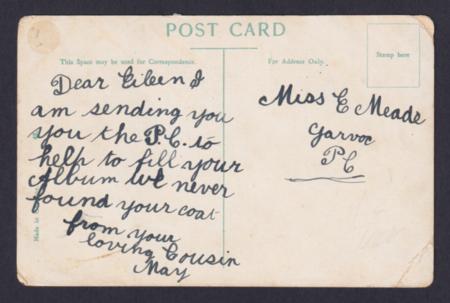 POST CARD
This Space may be used for Correspondence.
For Address Only.
Stamp here
Dear Eileen I
am sending you
you the P.C. to
help to fill your
Album We never
found your coat
from your
loving Cousin
May
Miss E Meade
Garvoc
P C
Made in